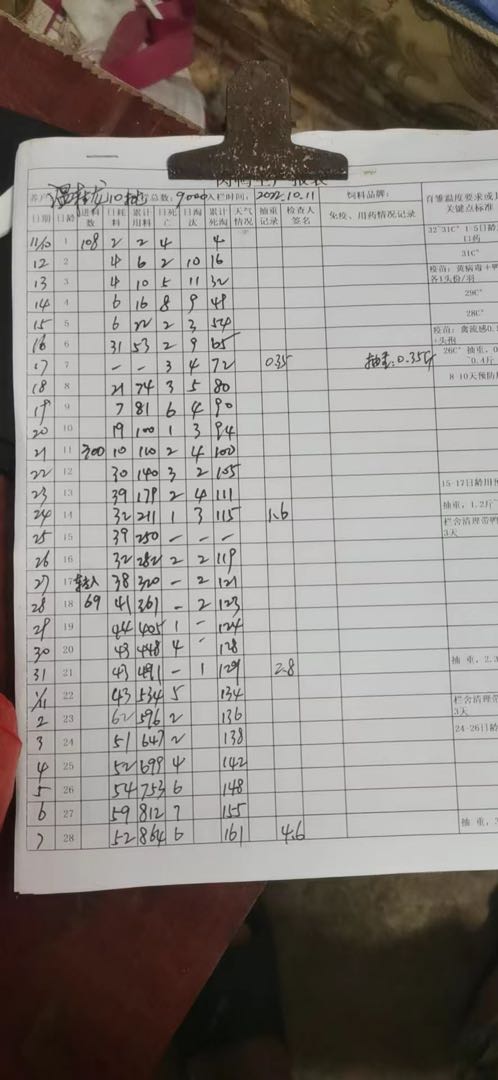 养户 温 龙 10 总数: 9000 入栏时间: 2022.10.11 饲料品牌:
日期 日龄 进料数 日耗料 累计用料 日死亡 日淘汰 累计死淘 天气情况 抽重记录 检查人签名 免疫、用药情况记录 育雏温度要求或 关键点标准
11/10 1 108 2 2 4 4 32°31C° 1-5日龄 口药
12 2 4 6 2 10 16 31C°
13 3 4 10 5 11 32 疫苗: 黄病毒+鸭 各1头份/羽
14 4 6 16 8 9 49 29C°
15 5 6 22 2 3 54 28C°
16 6 31 53 2 9 65 疫苗: 禽流感0.
17 7 - - 3 4 72 0.35 抽重:0.35 26C° 抽重, 0. ~0.4斤
18 8 21 74 3 5 80 8-10天预防
19 9 7 81 6 4 90
20 10 19 100 1 3 94
21 11 300 10 110 2 4 100
22 12 30 140 3 2 105
23 13 39 179 2 4 111 15-17日龄用
24 14 32 211 1 3 115 1.6 抽重, 1.2斤
25 15 39 250 - - - 栏舍清理带鸭 3天
26 16 32 282 2 2 119
27 17 38 320 - 2 121
28 18 69 41 361 - 2 123
29 19 44 405 1 - 124
30 20 43 448 4 - 128
31 21 43 491 - 1 129 2.8 抽 重, 2.3
1/11 22 43 534 5 134 栏舍清理带 3天
2 23 62 596 2 136
3 24 51 647 2 138 24-26日龄
4 25 52 699 4 142
5 26 54 753 6 148
6 27 59 812 7 155
7 28 52 864 6 161 4.6 抽 重,